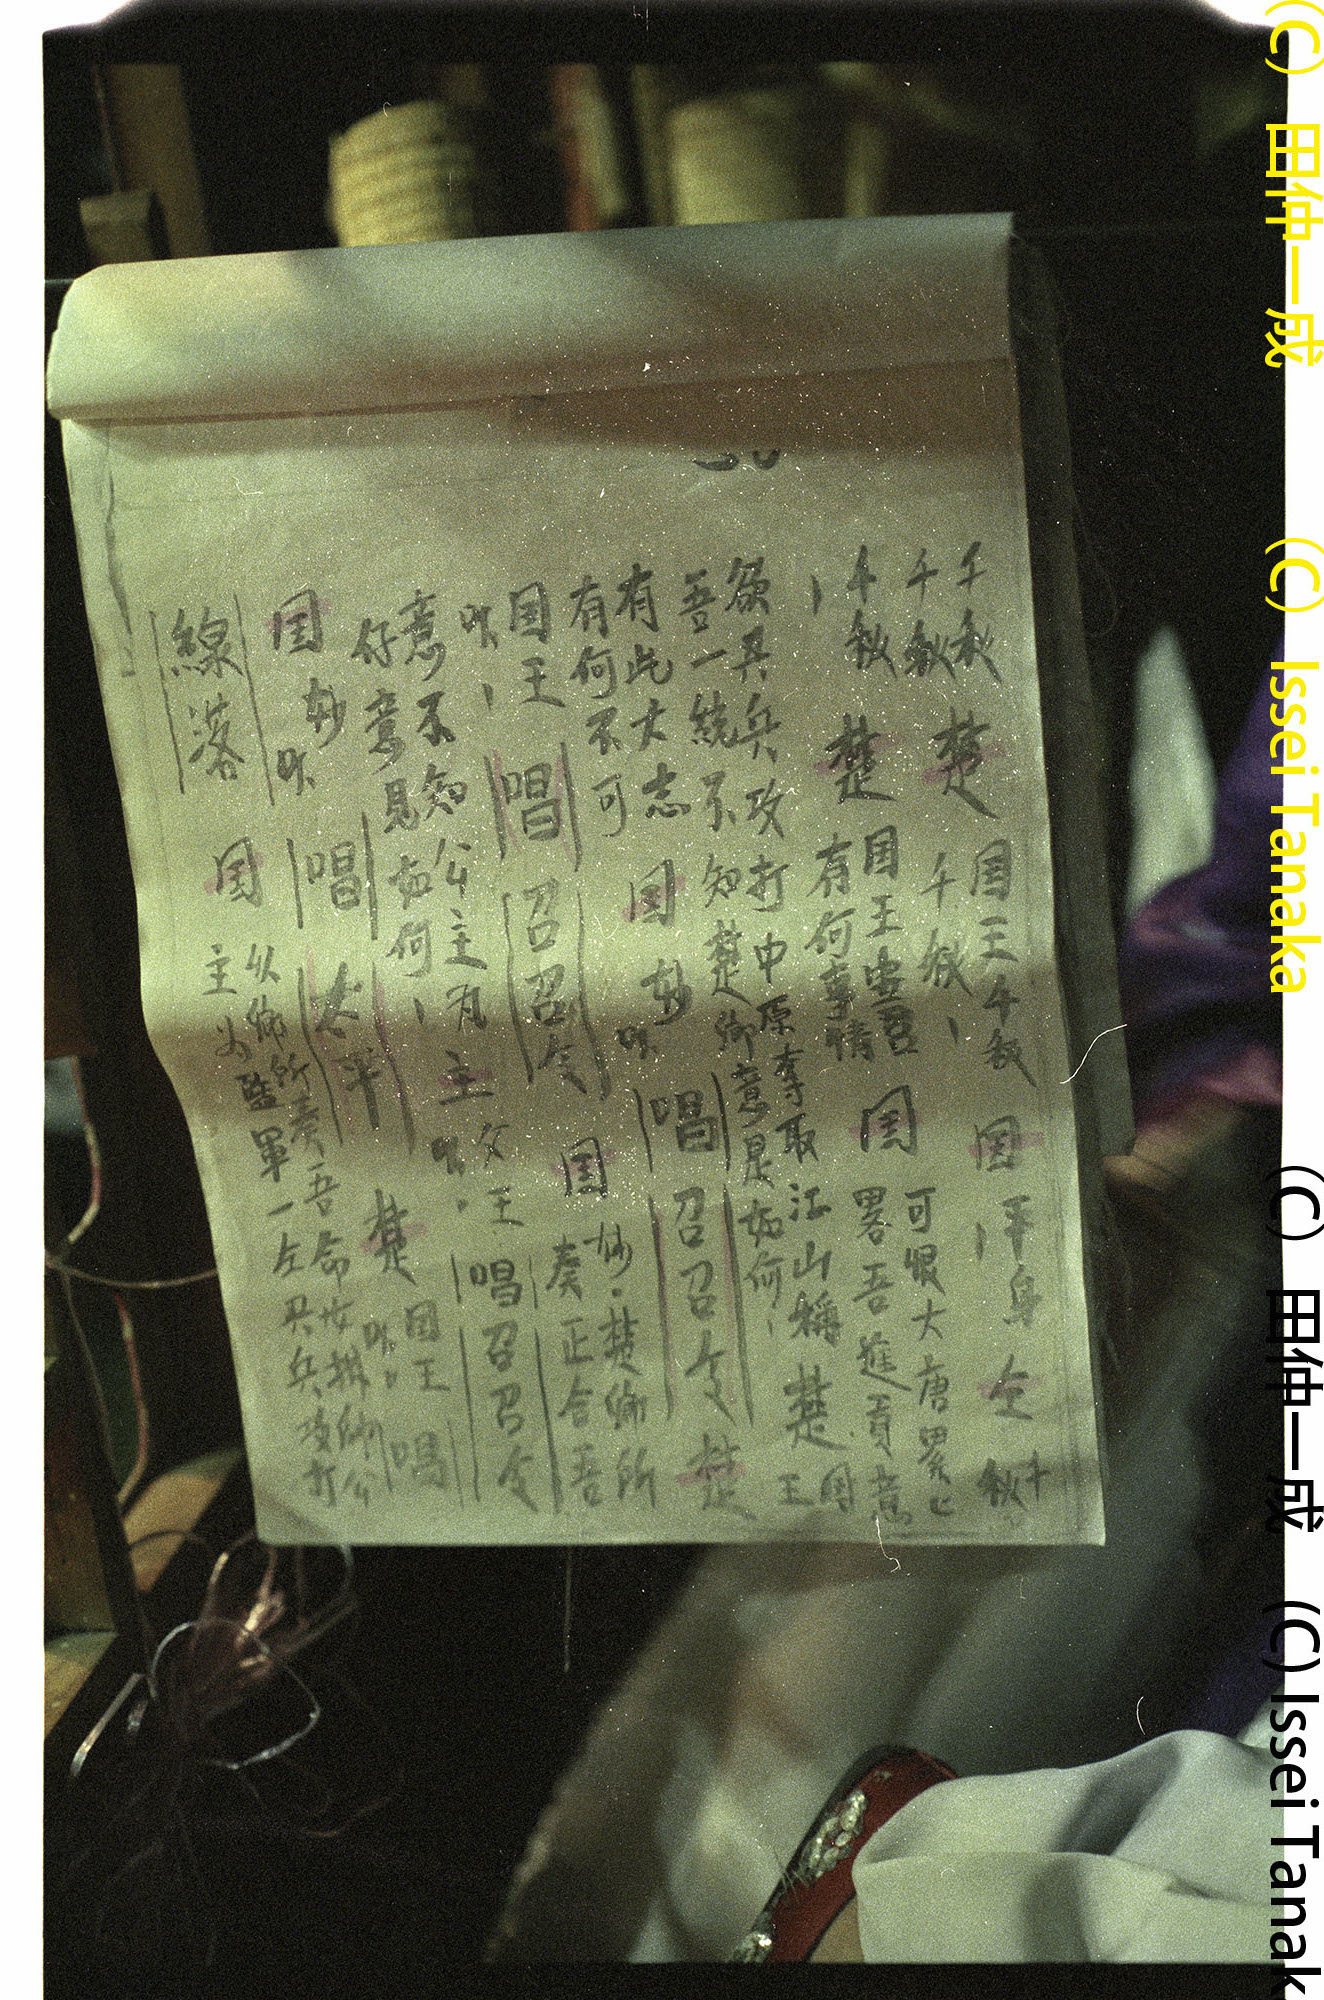 千秋 楚 国王千秋 国 平身 仝 千秋
千秋 千秋
千秋 楚 国王虫吾 国 可恨大唐累匕
有何事情 畧吾進貢意
欲具兵攻打中原奪取江山稱 楚 国王
吾一統不知楚卿意是如何
有此大志 国 妙 唱 召召令 楚
有何不可
国王 唱 召召令 国 妙 楚卿所
奏正合吾
意不知公主 主 父王 唱 召召令
好意見如何
国 妙 唱 太平 楚 国王 唱
線落 国 从卿所奏吾命女排卿公
主为監軍一仝具兵攻打
(C) 田仲一成 (C) Issei Tanaka (C) 田仲一成 (C) Issei Tanak